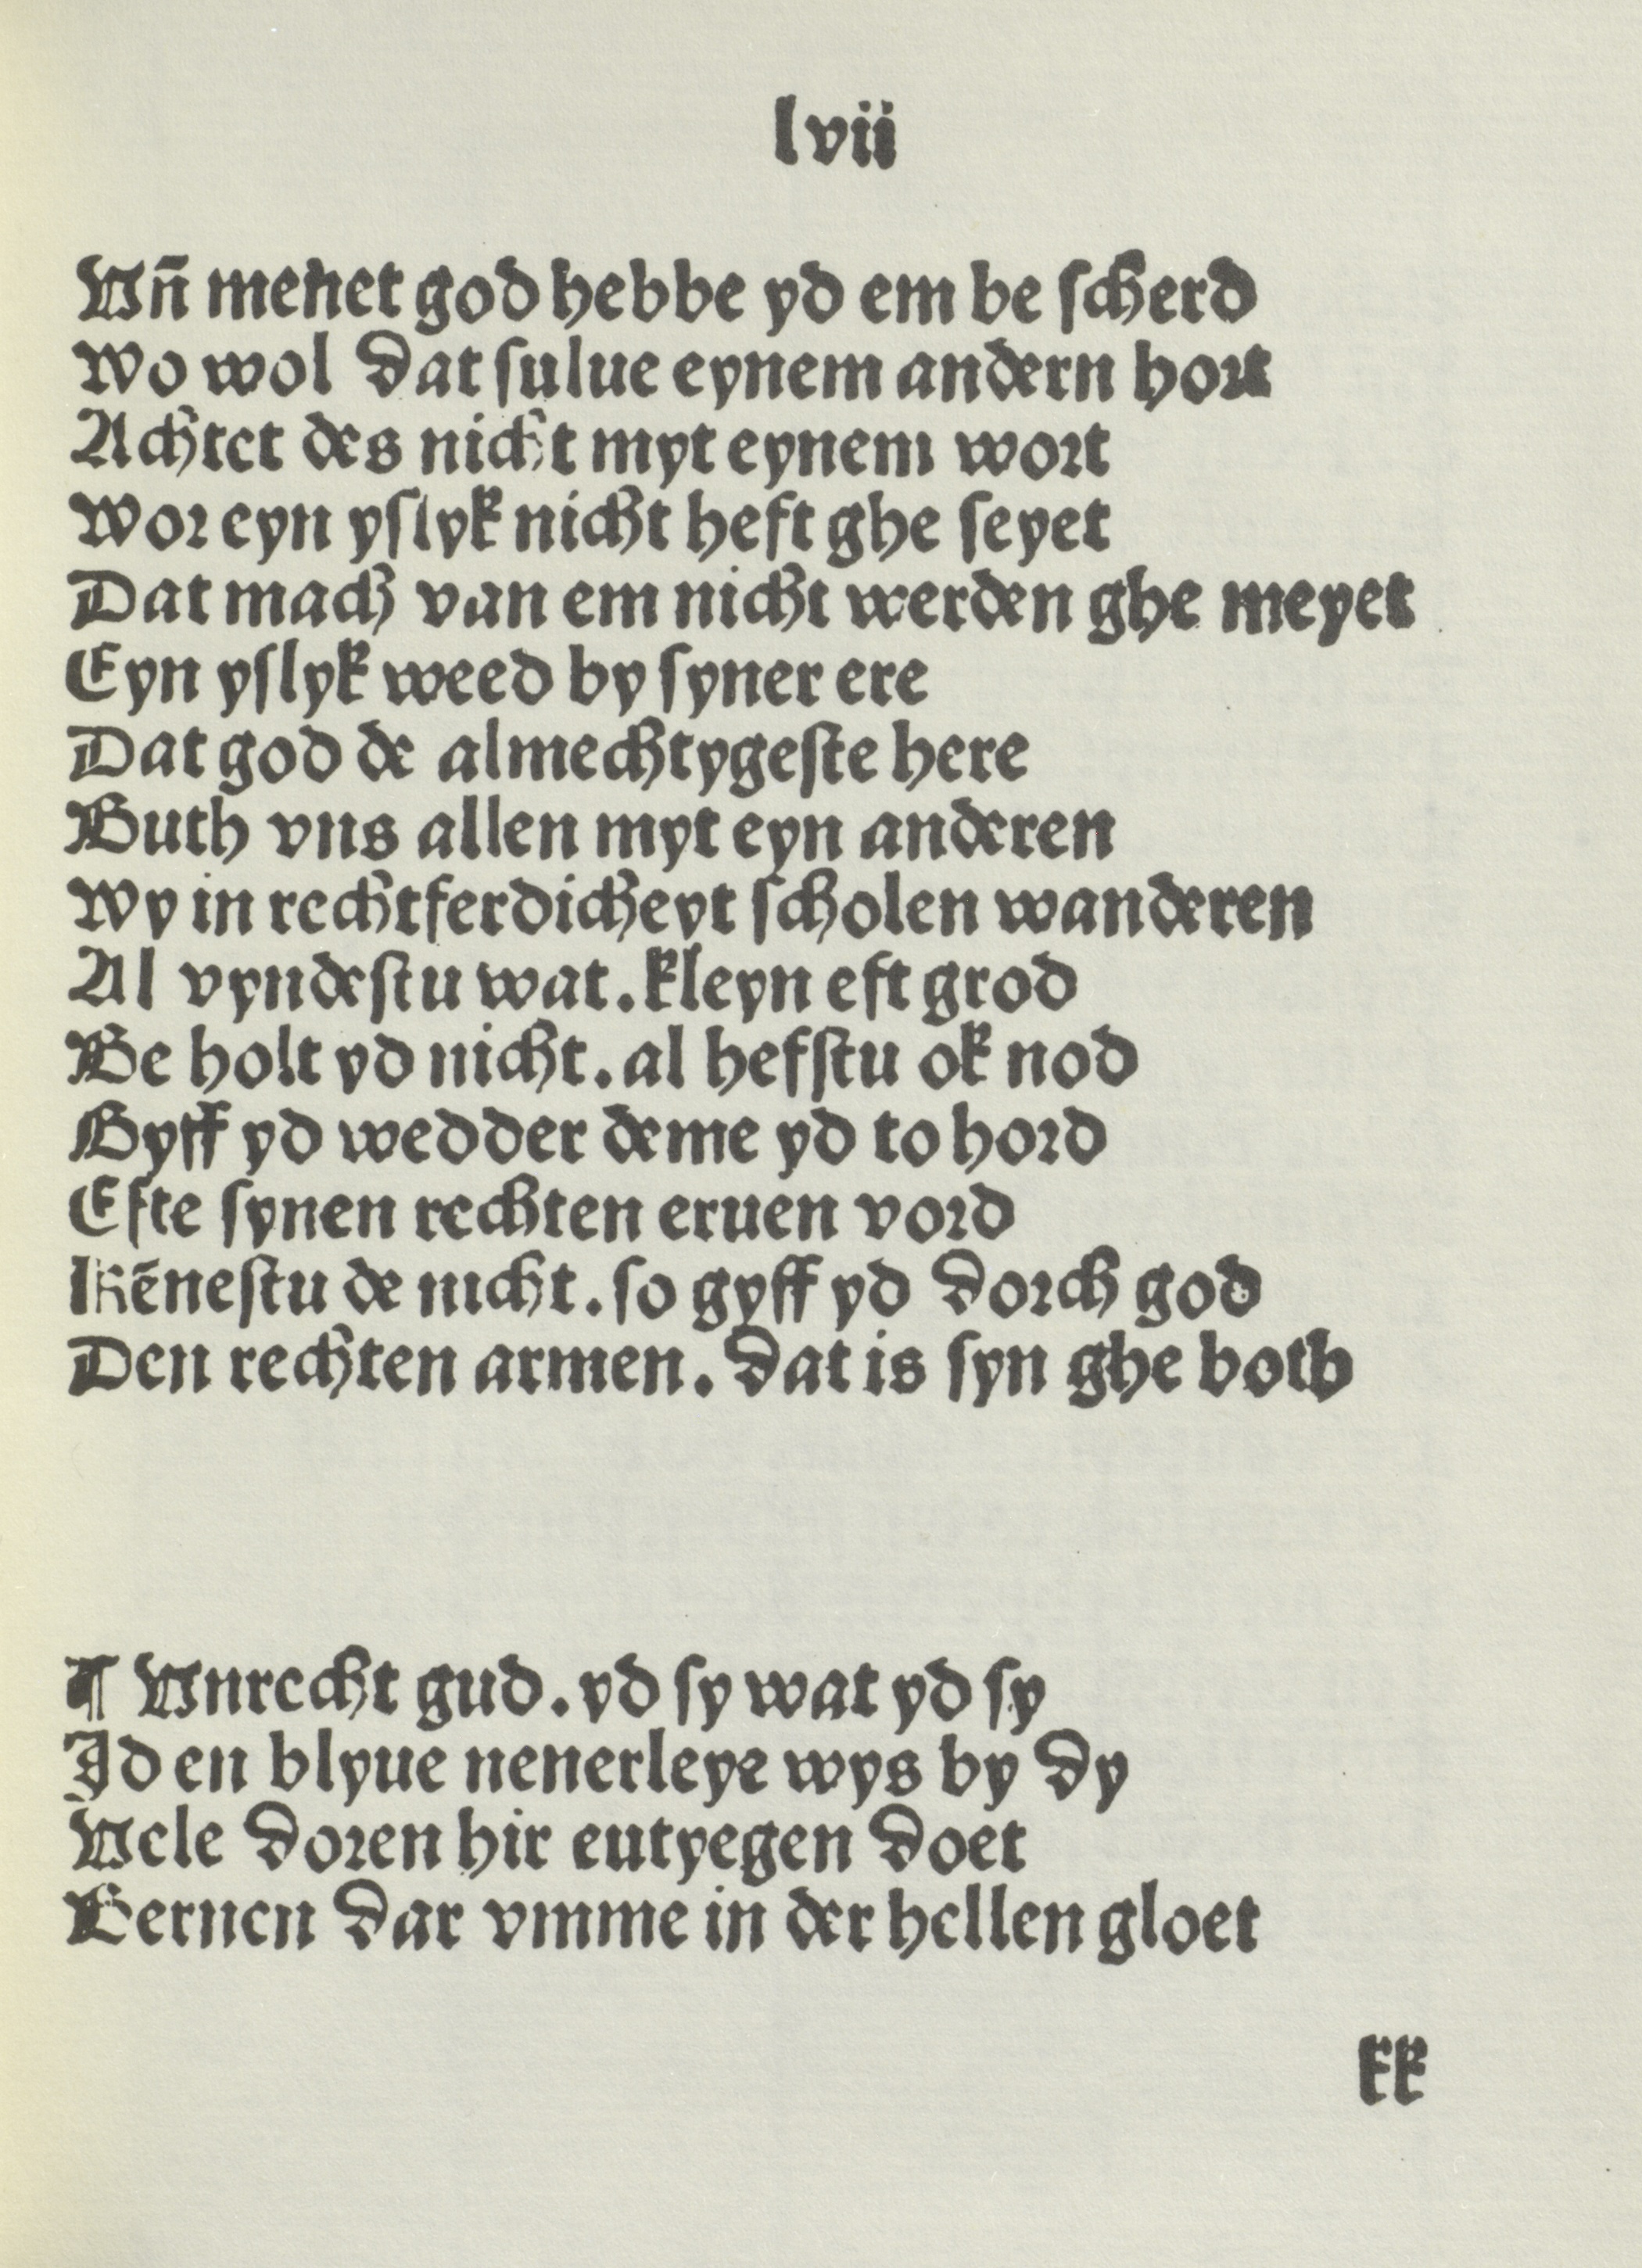 lvii
Vn̄ menet god hebbe yd em be scherd
Wo wol dat sulue eynem andern hort
Achtet des nicht myt eynem wort
Wor eyn yslyk nicht heft ghe seyet
Dat mach van em nicht werden ghe meyet
Eyn yslyk weed by syner ere
Dat god de almechtygeste here
Buth vns allen myt eyn anderen
Wy in rechtferdicheyt scholen wanderen
Al vyndestu wat. kleyn eft grod
Be holt yd nicht. al hefstu ok nod
Gyff yd wedder deme yd to hord
Efte synen rechten eruen vord
Kēnestu de nicht. so gyff yd dorch god
Den rechten armen. dat is syn ghe both
¶ Vnrecht gud. yd sy wat yd sy
Id en blyue nenerleye wys by dy
Vele doren hir eutyegen doet
Bernen dar vmme in der hellen gloet
kk